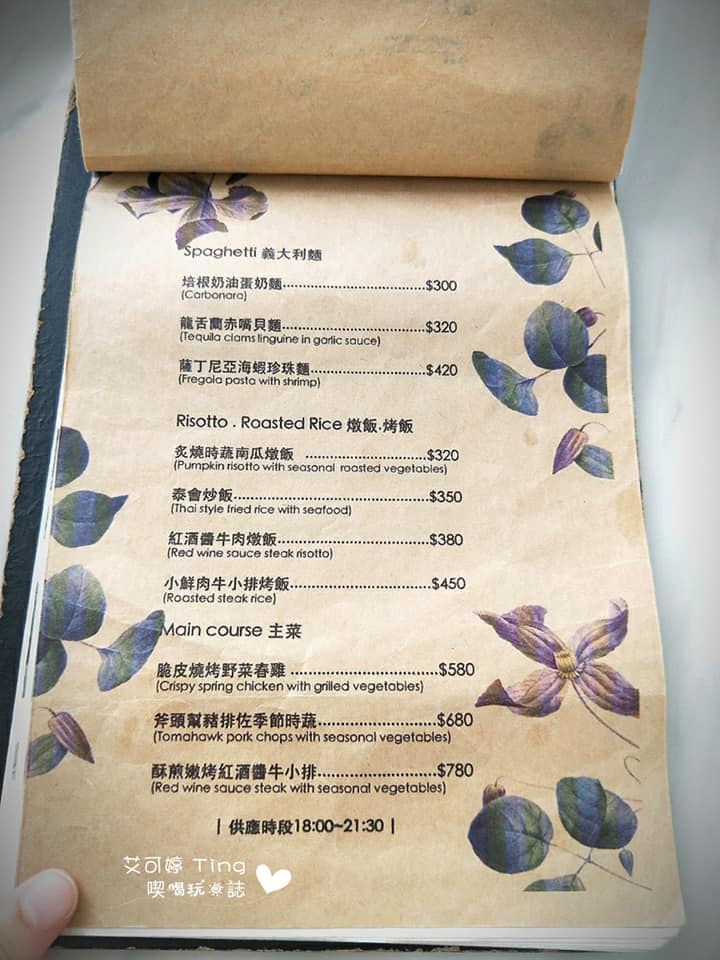 Spaghetti 義大利麵
培根奶油蛋奶麵..................................$300
(Carbonara)
龍舌蘭赤嘴貝麵..................................$320
(Tequila clams linguine in garlic sauce)
薩丁尼亞海蝦珍珠麵...........................$420
(Fregola pasta with shrimp)
Risotto . Roasted Rice 燉飯.烤飯
炙燒時蔬南瓜燉飯 .............................$320
(Pumpkin risotto with seasonal roasted vegetables)
泰會炒飯..............................................$350
(Thai style fried rice with seafood)
紅酒醬牛肉燉飯...................................$380
(Red wine sauce steak risotto)
小鮮肉牛小排烤飯................................$450
(Roasted steak rice)
Main course 主菜
脆皮燒烤野菜春雞 .................................$580
(Crispy spring chicken with grilled vegetables)
斧頭幫豬排佐季節時蔬..........................$680
(Tomahawk pork chops with seasonal vegetables)
酥煎嫩烤紅酒醬牛小排..........................$780
(Red wine sauce steak with seasonal vegetables)
| 供應時段18:00~21:30 |
艾可婷 Ting
喫喝玩樂誌